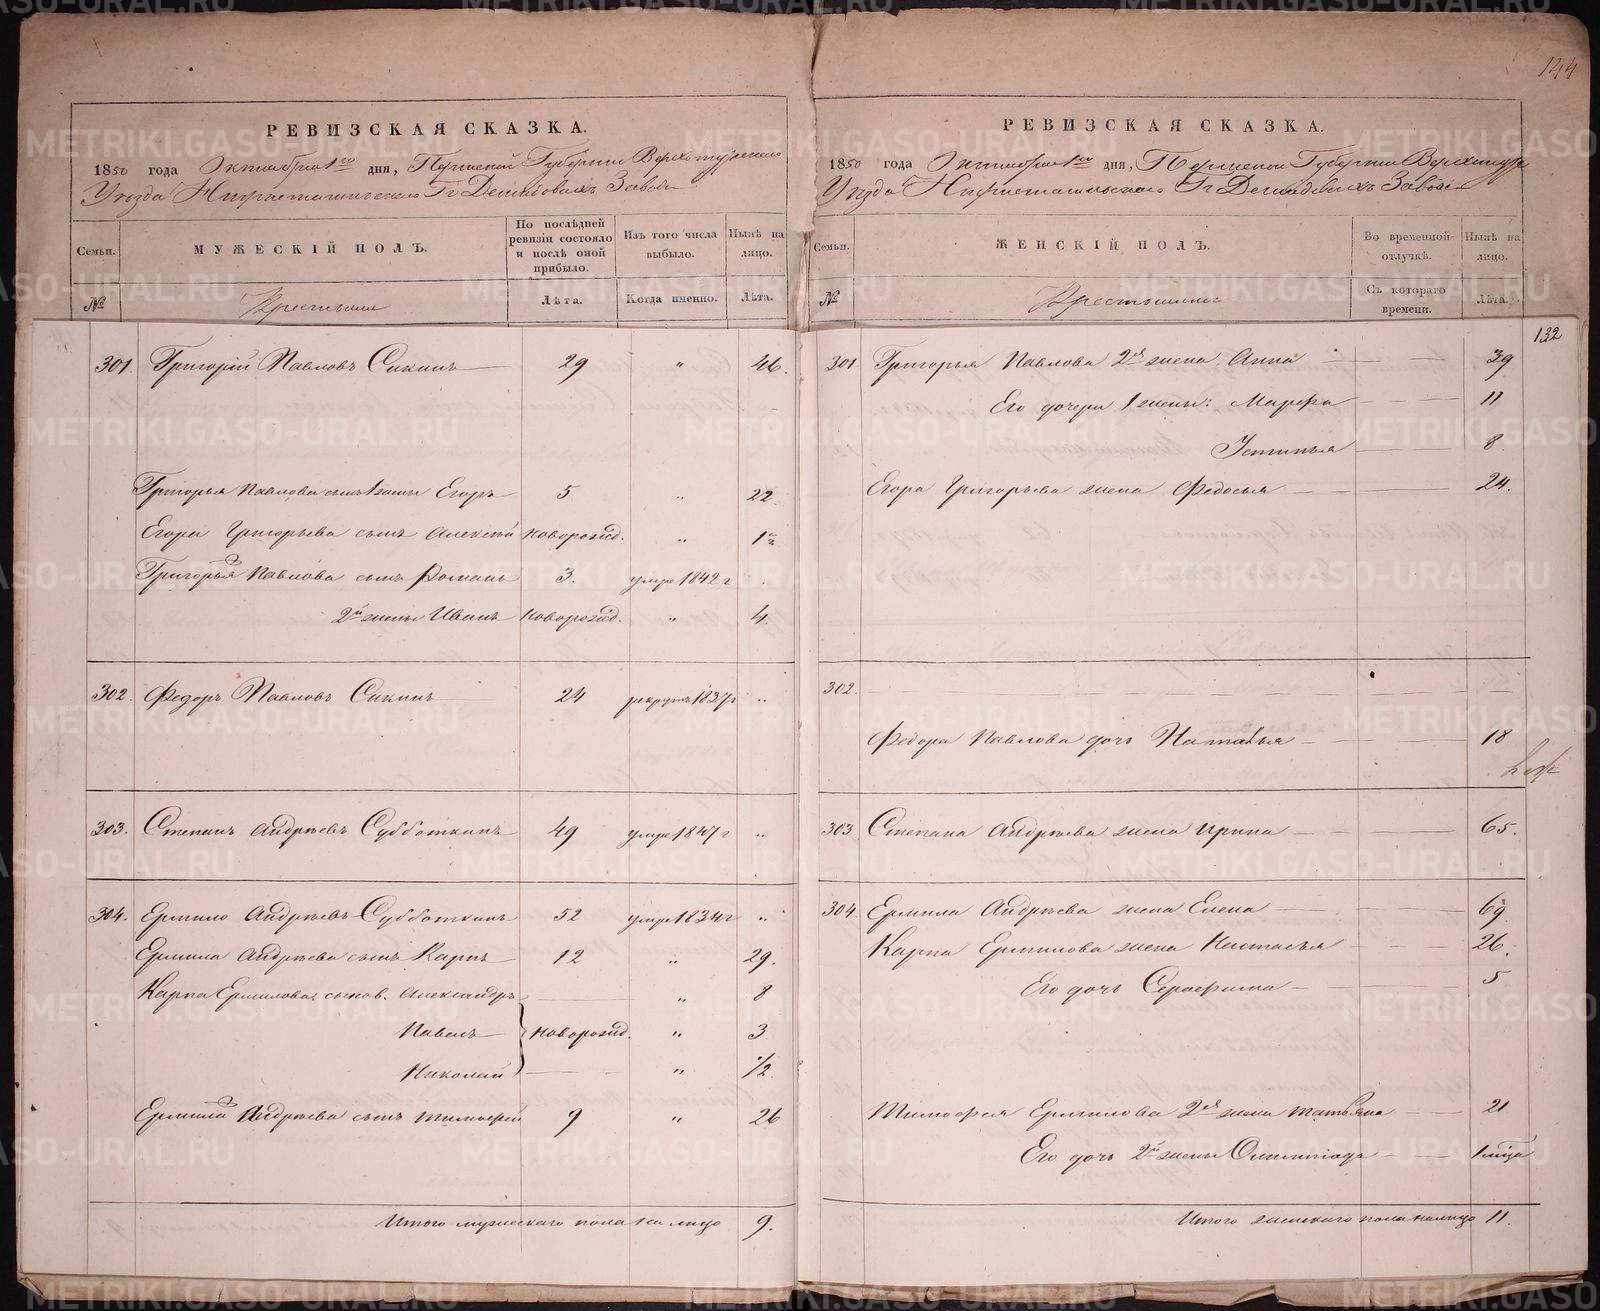 144
РЕВИЗСКАЯ СКАЗКА.
1850 года Октября 1го дня, Пермской Губернии Верхотурскаго
Уезда Нижнетагильскаго Гг Демидовыхъ Завода
Семьи. МУЖЕСКІЙ ПОЛЪ. По послѣдней ревизіи состояло и послѣ оной прибыло. Изъ того числа выбыло. Нынѣ на лицо.
№ Крестьяне Лѣта. Когда именно. Лѣта.
301 Григорій Павловъ Сикинъ 29 " 46.
Григорья Павлова сынъ 1 жены Егоръ 5 " 22
Егора Григорьева сынъ Алексѣй новорожд. "
Григорья Павлова сынъ Романъ 3. умре 1842 г
2й жены Иванъ новорожд. " 4
302. Федоръ Павловъ Сикинъ 24 рекрут 1837 г "
303. Степанъ Андрѣевъ Субботкинъ 49 умре 1847 г "
304. Ермило Андрѣевъ Субботкинъ 52 умре 1834 г "
Ермила Андрѣева сынъ Карпъ 12 " 29.
Карпа Ермилова сынов. Александръ " 8
Павелъ новорожд. " 3
Николай " 1/2
Ермила Андрѣева сынъ Тимофей 9 " 26
Итого мужескаго пола на лицо 9.
РЕВИЗСКАЯ СКАЗКА.
1850 года Октября 1го дня, Пермской Губерніи Верхотурс
Уезда Нижнетагильскаго Гг Демидовыхъ Завода
Семьи. ЖЕНСКІЙ ПОЛЪ. Во временной отлучкѣ. Нынѣ на лицо.
№ Крестьянки Съ котораго времени. Лѣта.
132
301 Григорья Павлова 2я жена Анна 39
Его дочери 1 жены: Марфа 11
Устинья 8.
Егора Григорьева жена Федосья 24.
302.
Федора Павлова дочь Наталья 18
303 Степана Андрѣева жена Ирина 65.
304 Ермила Андрѣева жена Елена 69
Карпа Ермилова жена Настасья 26.
Его дочь Серафима 5
Тимофея Ермилова 2я жена Татьяна 21
Его дочь 2й жены Олимпіада
Итого женскаго пола налицо 11.
METRIKI.GASO-URAL.RU